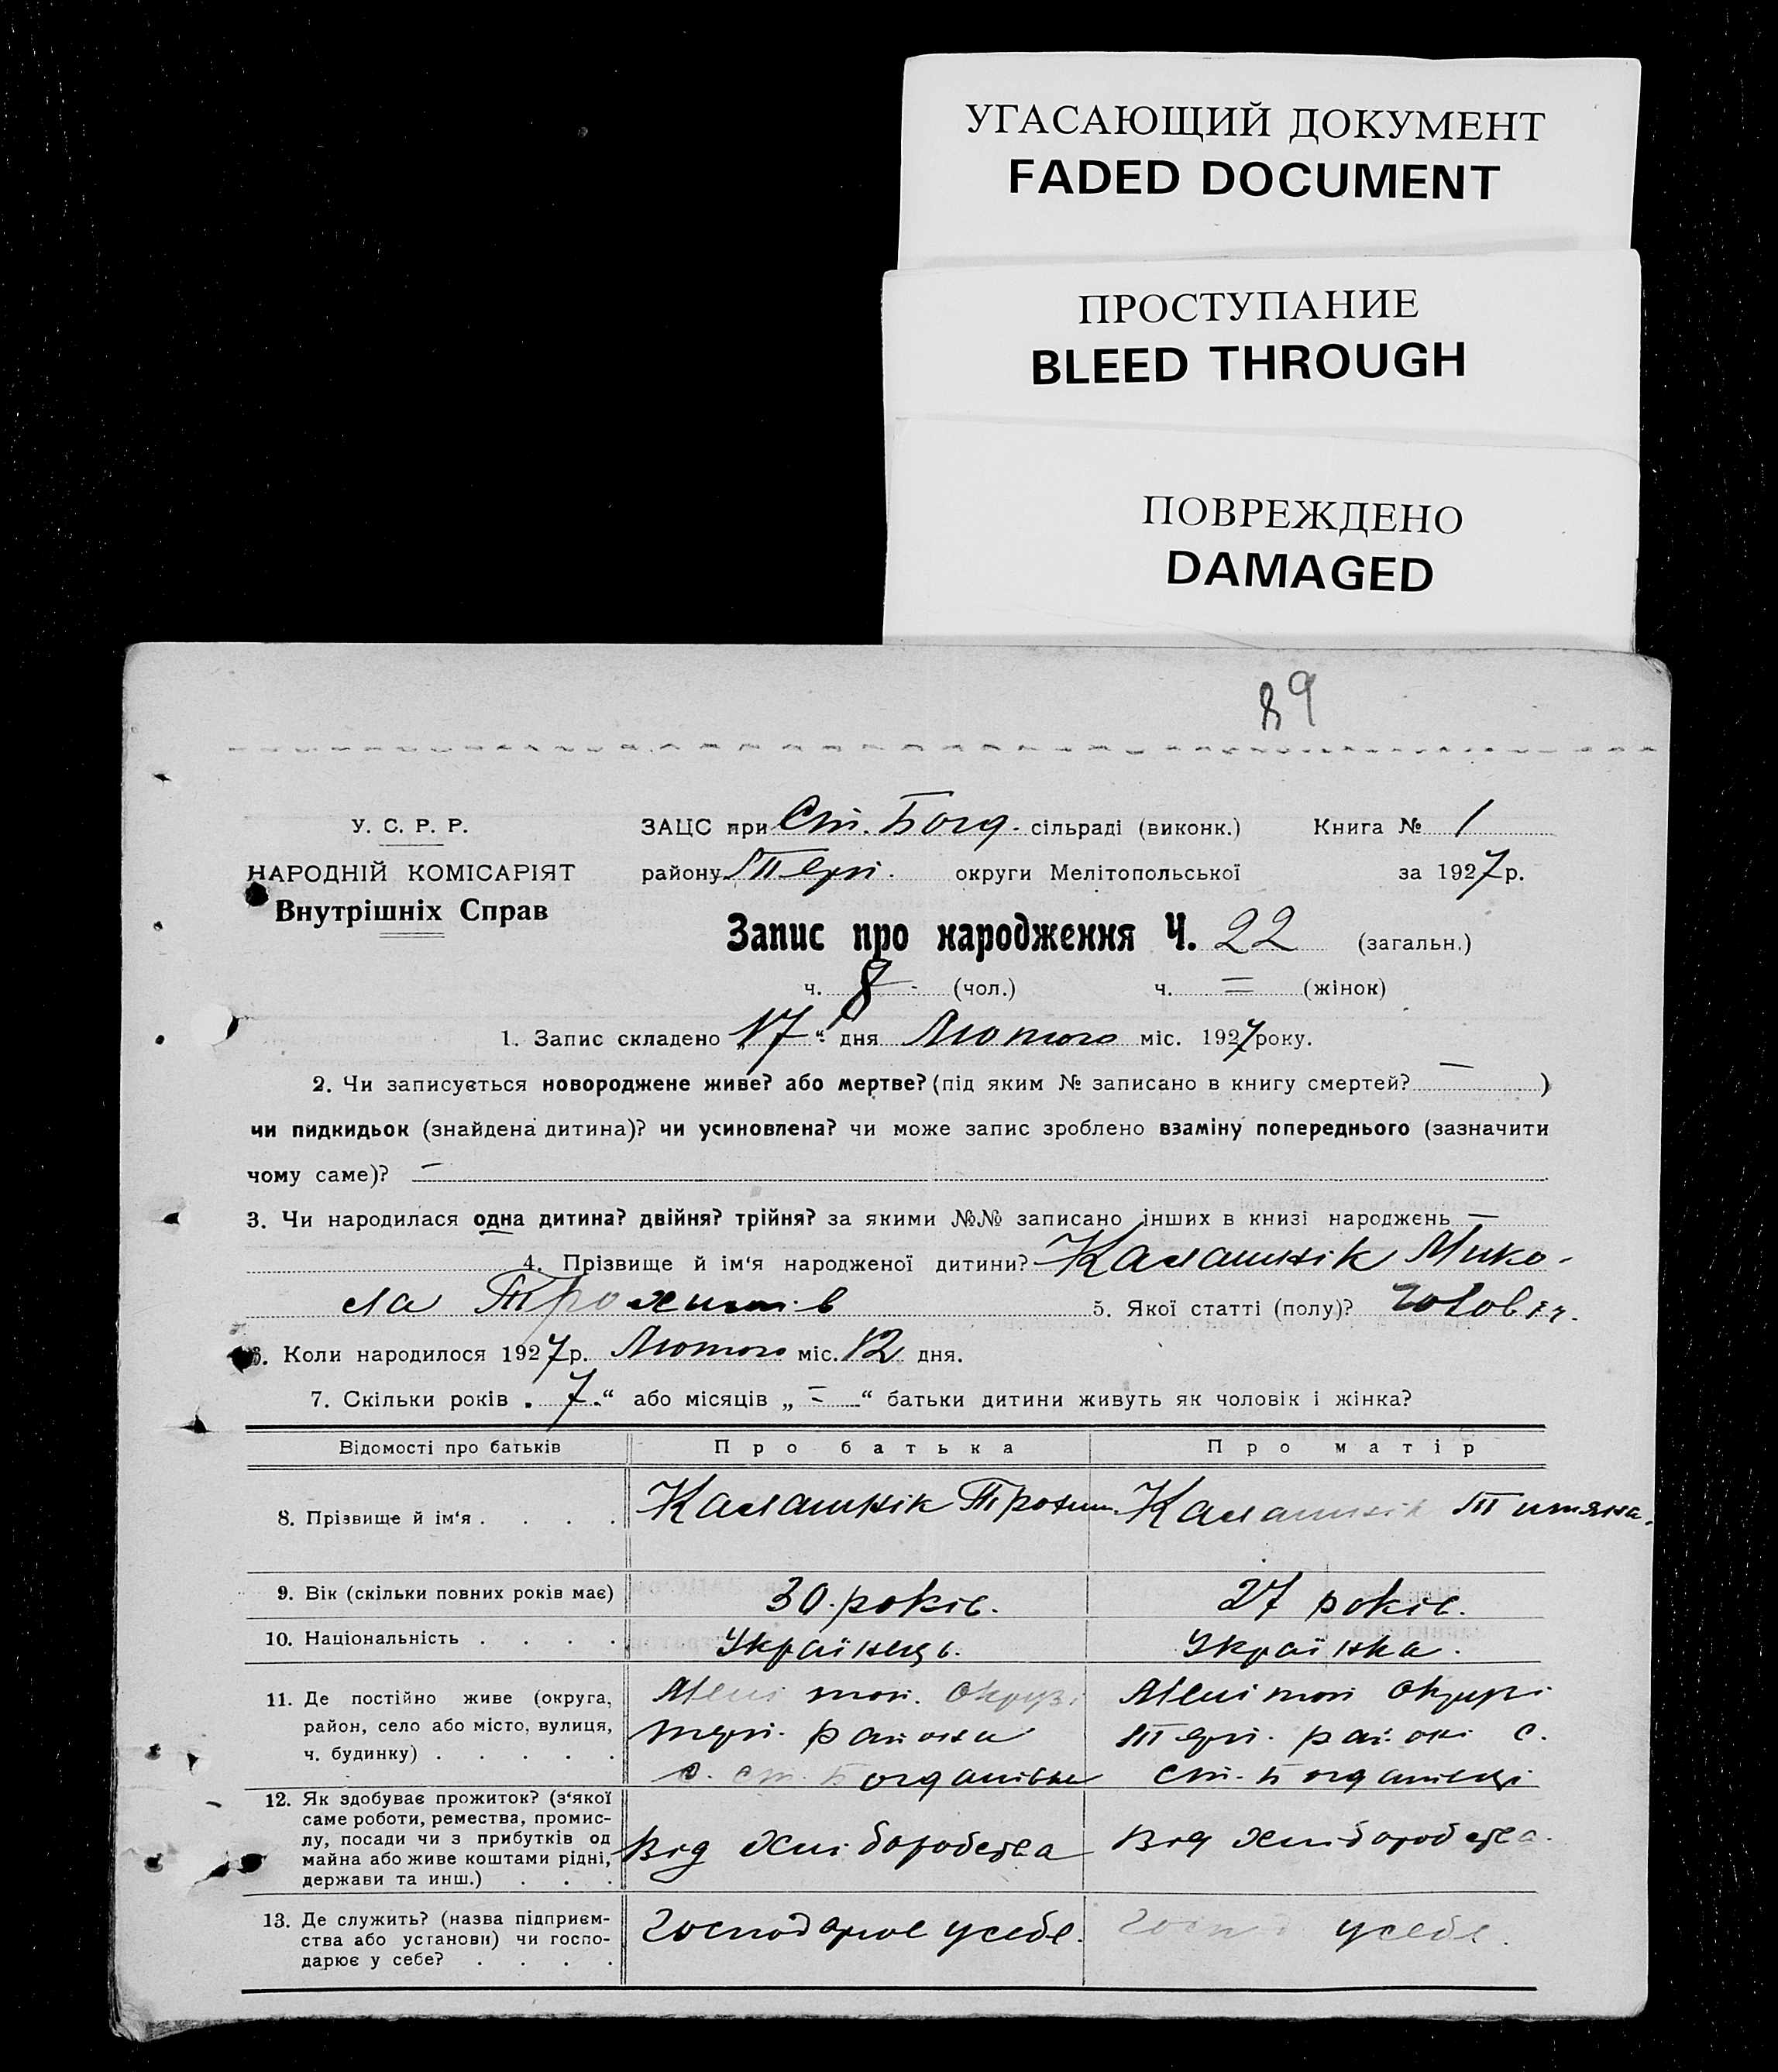 УГАСАЮЩИЙ ДОКУМЕНТ
FADED DOCUMENT
ПРОСТУПАНИЕ
BLEED THROUGH
ПОВРЕЖДЕНО
DAMAGED
89
У. С. Р. Р.
НАРОДНІЙ КОМІСАРІЯТ
Внутрішніх Справ
ЗАЦС при Ст. Богд. сільраді (виконк.) Книга № 1
району Терп. округи Мелітопольської за 1927 р.
Запис про народження Ч. 22 (загальн.)
ч. 8 - (чол.) ч. = (жінок)
1. Запис складено „17“ дня Лютого міс. 1927 року.
2. Чи записується новороджене живе? або мертве? (під яким № записано в книгу смертей? — )
чи пидкидьок (знайдена дитина)? чи усиновлена? чи може запис зроблено взаміну попереднього (зазначити
чому саме)? —
3. Чи народилася одна дитина? двійня? трійня? за якими №№ записано інших в книзі народжень —
4. Прізвище й ім‘я народженої дитини? Калашнік Мико-
ла 5. Якої статті (полу)? чоловіч.
6. Коли народилося 1927 р. Лютого міс. 12 дня.
7. Скільки років „ 7 “ або місяців „ = “ батьки дитини живуть як чоловік і жінка?
Відомості про батьків Про батька Про матір
8. Прізвище й ім‘я . . . . Калашнік Трохим Калашнік Титяна.
9. Вік (скільки повних років має) 30. років. 27 років.
10. Національність . . . . Українець. Українка.
11. Де постійно живе (округа,
район, село або місто, вулиця,
ч. будинку) . . . . .
Мелітоп. округі
терп. района
с. ст. Богданівка
Мелітоп округі
Терп. районі с.
ст. Богданівці
12. Як здобуває прожиток? (з‘якої
саме роботи, ремества, промис-
лу, посади чи з прибутків од
майна або живе коштами рідні,
держави та инш.) . . .
Від хліборобства
Від хліборобства.
13. Де служить? (назва підприєм-
ства або установи) чи госпо-
дарює у себе? . . . .
Господарює усебе.
Господ усебе.